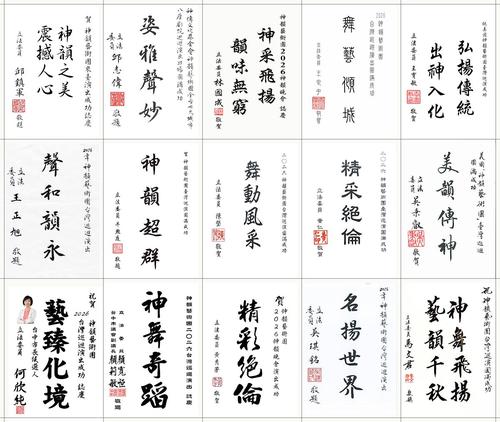 賀 神韻藝術團來臺演出成功 誌慶
神韻之美
震撼人心
立法委員 邱鎮軍 敬題
姿雅聲妙
立法委員 邱志偉 敬題
神韻藝術團2026神韻晚會 誌慶
神采飛揚
韻味無窮
立法委員 林國成 敬賀
2026 神韻藝術團
台灣巡迴演出圓滿成功
舞藝傾城
立法委員 敬賀
弘揚傳統
出神入化
立法委員 王育敏 敬賀
2026年神韻藝術團台灣巡迴演出
聲和韻永
立法委員 王正旭 敬題
賀神韻藝術團台灣巡迴演出圓滿成功
神韻超群
立法委員 敬題
二〇二六神韻藝術團臺灣巡演圓滿成功
舞動風采
立法委員 陳瑩 敬賀
二〇二六神韻藝術團臺灣巡迴演出圓滿成功
精采絕倫
立法委員 黃仁 敬賀
美國神韻藝術團 臺灣巡迴
圓滿成功
美韻傳神
立法委員 吳宗憲 敬賀
祝賀 神韻藝術團
2026 台灣巡迴演出成功 誌慶
藝臻化境
台中市長候選人
立法委員 何欣純
神韻藝術團二〇二六台灣巡迴演出 誌慶
神舞奇蹈
立法委員 顏寬恒
台中市議會副議長 顏莉敏 敬題
賀 神韻藝術團
2026台灣巡迴演出圓滿成功
精彩絕倫
立法委員 黃秀芳 敬賀
2026年神韻藝術團台灣巡迴演出
名揚世界
立法委員 吳琪銘 敬題
祝神韻藝術團台灣巡演圓滿成功
神舞飛揚
藝韻千秋
立法委員 馬文君 敬題